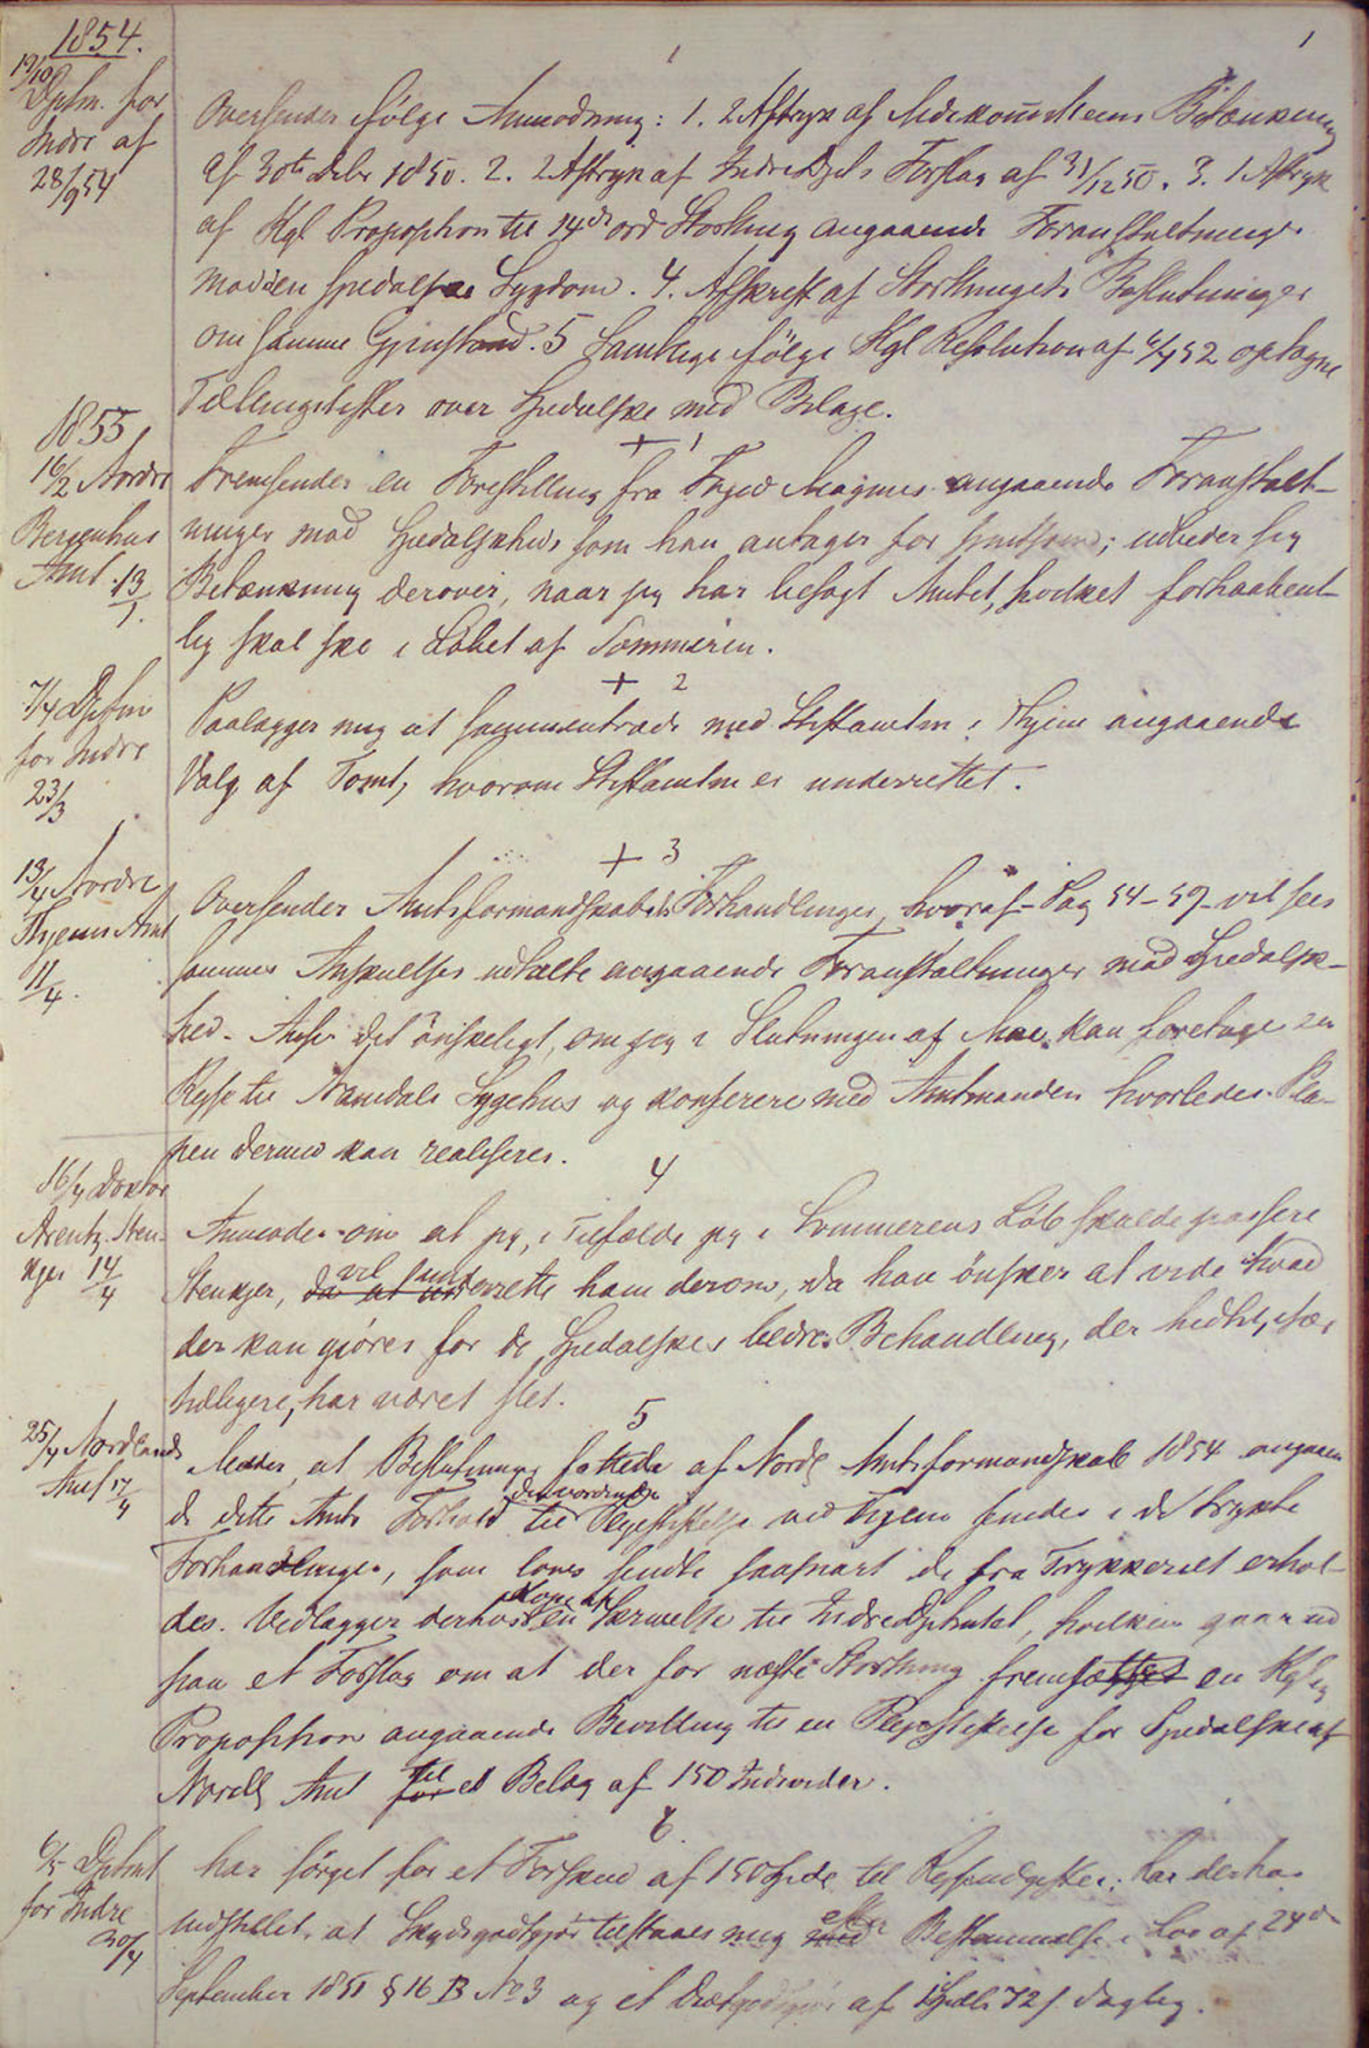 1854.
1
1
19/10
Dptm. for
Indre af
28/9 54
Oversender ifølge Anmodning: 1. 2 Aftryk af Betænkning
af 30te Debr 1850. 2. 2 Aftryk af Indre Dpts Forslag af 31/12 50. 3. 1 Aftryk
af Kgl Proposition til 14de ord Storthing angaaende Foranstaltninger
mod den spedalske Sygdom. 4. Afskrift af Storthingets Beslutninger
om samme Gjenstand. 5 Samtlige ifølge Kgl Resolution af 52 optagne
Tællingslister over Spedalske med Bilage.
1855
+ 1
16/2 Nordre
Bergenhus
Amt. 13/1.
Fremsender en Forestilling fra Foged Magnus angaaende Foranstalt-
ninger mod Spedalskhed, som han antager for smitsom; udbeder sig
Betænkning derover, naar jeg har besøgt Amtet, hvilket forhaabent-
lig skal ske i Løbet af Sommeren.
+ 2
7/4 Dptm
for Indre
23/3
Paalægger mig at sammentræde med Stiftamtm i Thjem angaaende
Valg af Tomt, hvorom Stiftamtm er underrettet.
+ 3
13/4 Nordre
Thjems Amt
11/4.
Oversender Amtsformandskabets Forhandlinger, hvoraf Pag 54-59 vil sees
sammes Anskuelser udtalte angaaende Foranstaltninger mod Spedalsk-
hed. Anser det ønskeligt, om jeg i Slutningen af Mai kan foretage en
Rejse til Namdals Sygehus og konferere med Amtmanden hvorledes Pla-
nen dermed kan realiseres.
4
16/4 Doktor
Arentz. Sten-
kjer 14/4
Anmoder om at jeg, i Tilfælde jeg i Sommerens Løb skulde passere
Stenkjer, vil underrette ham derom, da han ønsker at vide hvad
der kan gjøres for de Spedalskes bedre Behandling, der hidtil, især
tidligere, har været slet.
5
25/4 Nordlands
Amt 17/4
Melder, at Beslutninger fattede af Nordl Amtsformandskab 1854 angaaen
de dette Amts Forhold til den vordende Plejestiftelse ved Thjem findes i de trykte
Forhandlinger, som loves sendte saasnart de fra Trykkeriet erhol-
des. Vedlægger derhos Kopi af en Skrivelse til Indre Dptmtet, hvilken gaar ud
paa et Forslag om at der for næste Storthing fremsættes en Kgl
Proposition angaaende Bevilling til en Plejestiftelse for Spedalske af
Nordl Amt til et Belæg af 150 Individer.
6.
6/5 Dptmt
for Indre
30/4
har sørget for et Forskud af 150 Spd til Rejseudgifter; har derhos
indstillet, at Skydsgodtgjør tilstaaes mig efter Bestemmelse i Lov af 24de
September 1851 § 16 B No 3 og et Diætgodtgjør af 1 Spdlr 72 s daglig.